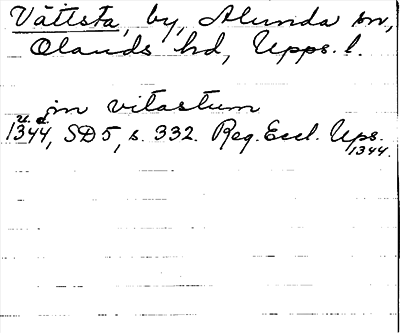 Vättsta, by, Alunda sn,
Olands hd, Upps. l.
in vitastum
u. d.
1344, SD5, s. 332. Reg. Eccl. Ups.
1344.